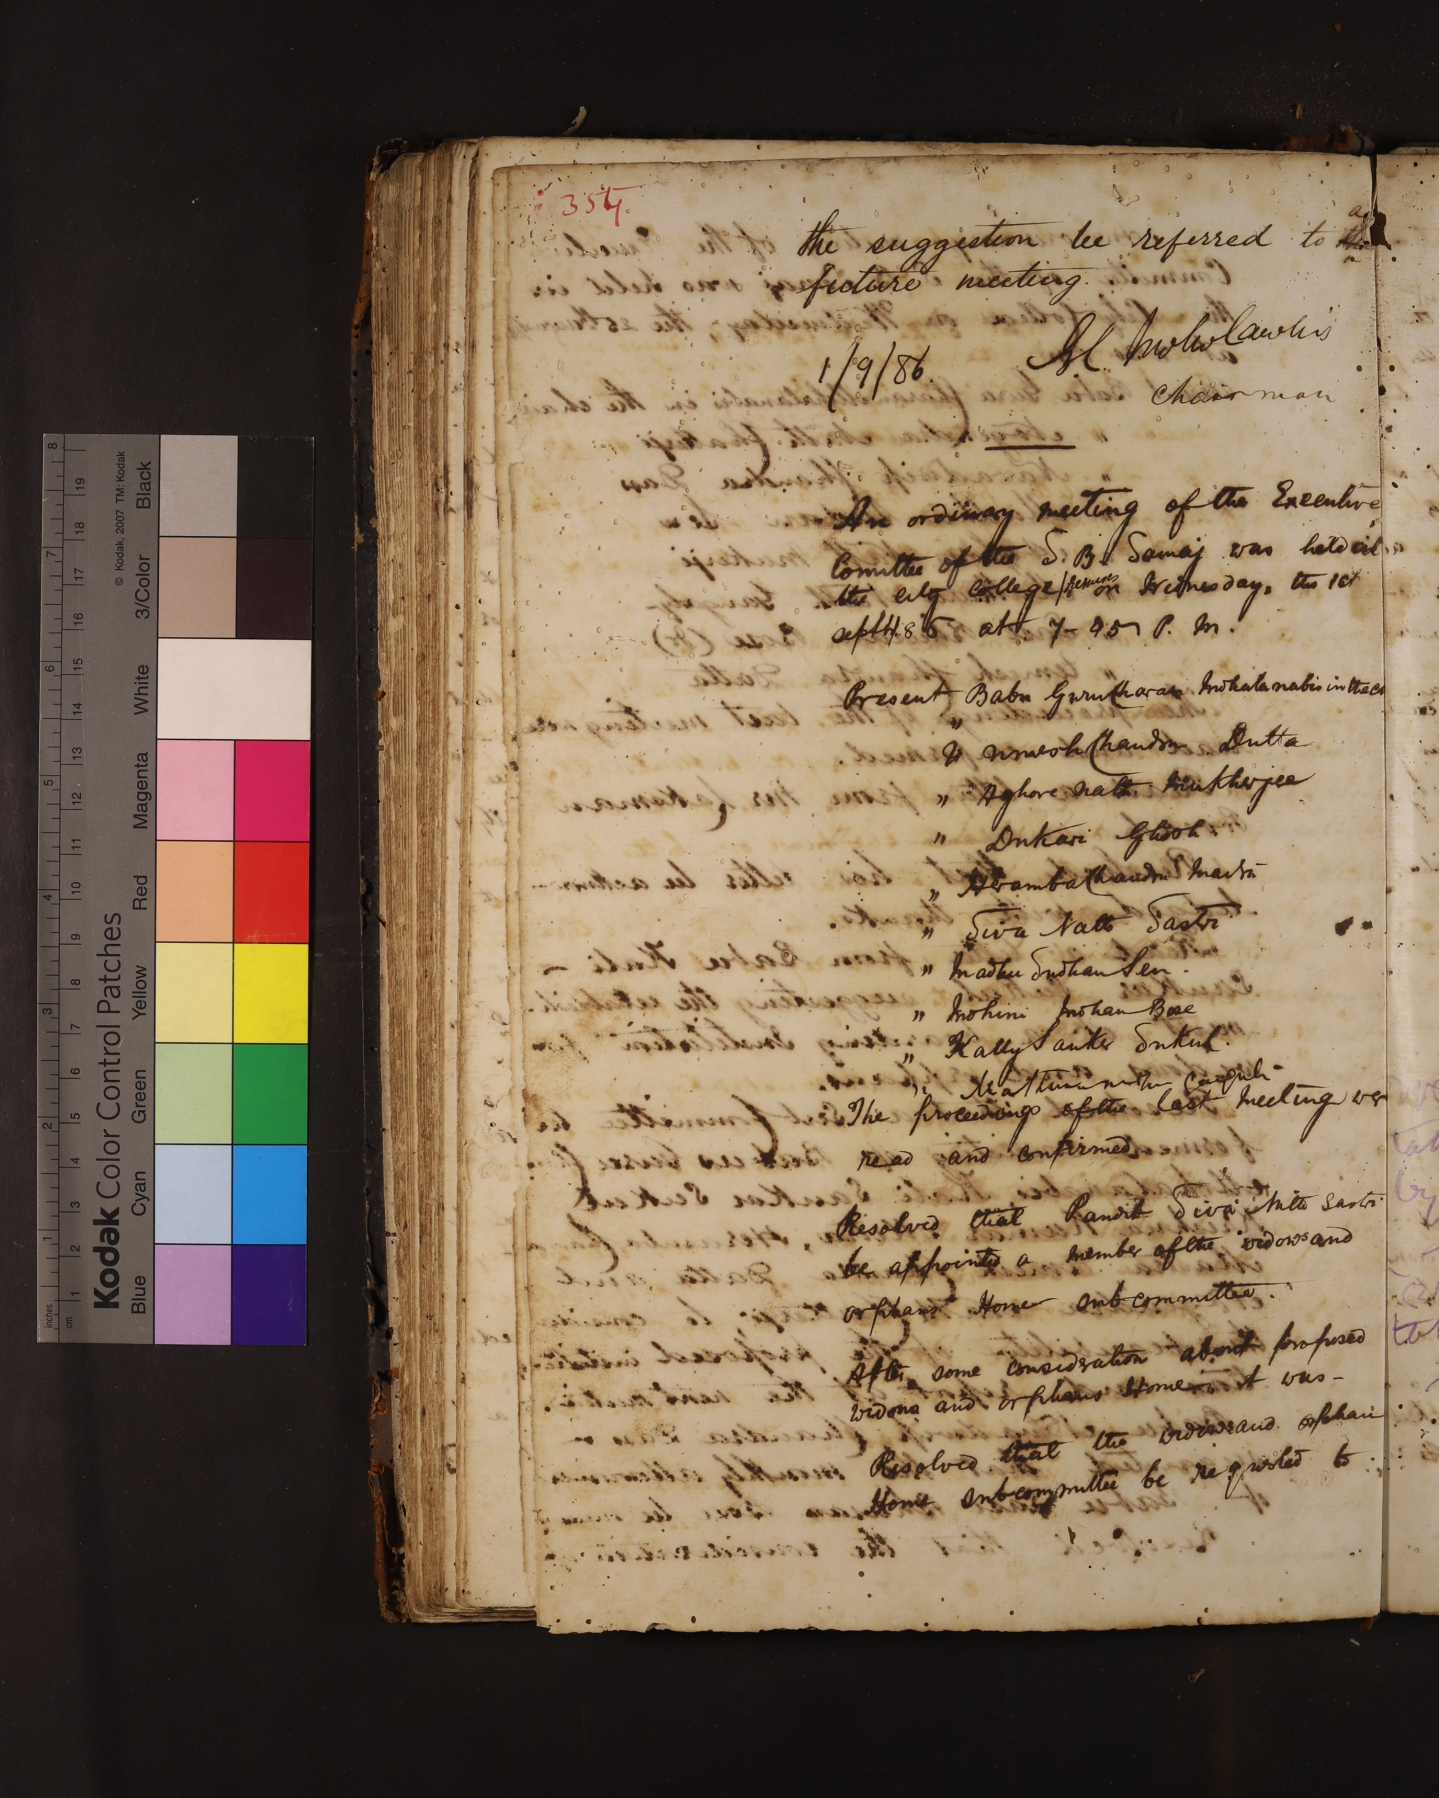 354.
the suggestion be referred to a
future meeting.
1/9/86.
Chairman
An ordinary meeting of the Executive
Comittee of the S. B. Samaj was held at
the city college premises on Wednesday, the 1st
sept 86 at 7-45 P. M.
Present Babu Guru Charan Mohalanabis in the
" Umesh Chandra Dutta
" Aghore Nath Mukherjee
" Dukari Ghosh
" Heramba Chandra Maitra
" Siva Nath Sastri
" Madhu Sudhan Sen.
" Mohini Mohan Bose
" Kally Sanker Sukul.
" Mathura nath Ganguli
The proceedings of the last meeting wer
read and confirmed
Resolved that Pandit Siva Nath Sastri
be appointed a member of the widows and
orphans Home sub committee.
After some consideration about proposed
widows and orphans Home it was-
Resolved that the widows and orphan
Home sub committee be requested to
Kodak Color Control Patches
© Kodak, 2007 TM: Kodak
Blue Cyan Green Yellow Red Magenta White 3/Color Black
inches 1 2 3 4 5 6 7 8
cm 1 2 3 4 5 6 7 8 9 10 11 12 13 14 15 16 17 18 19